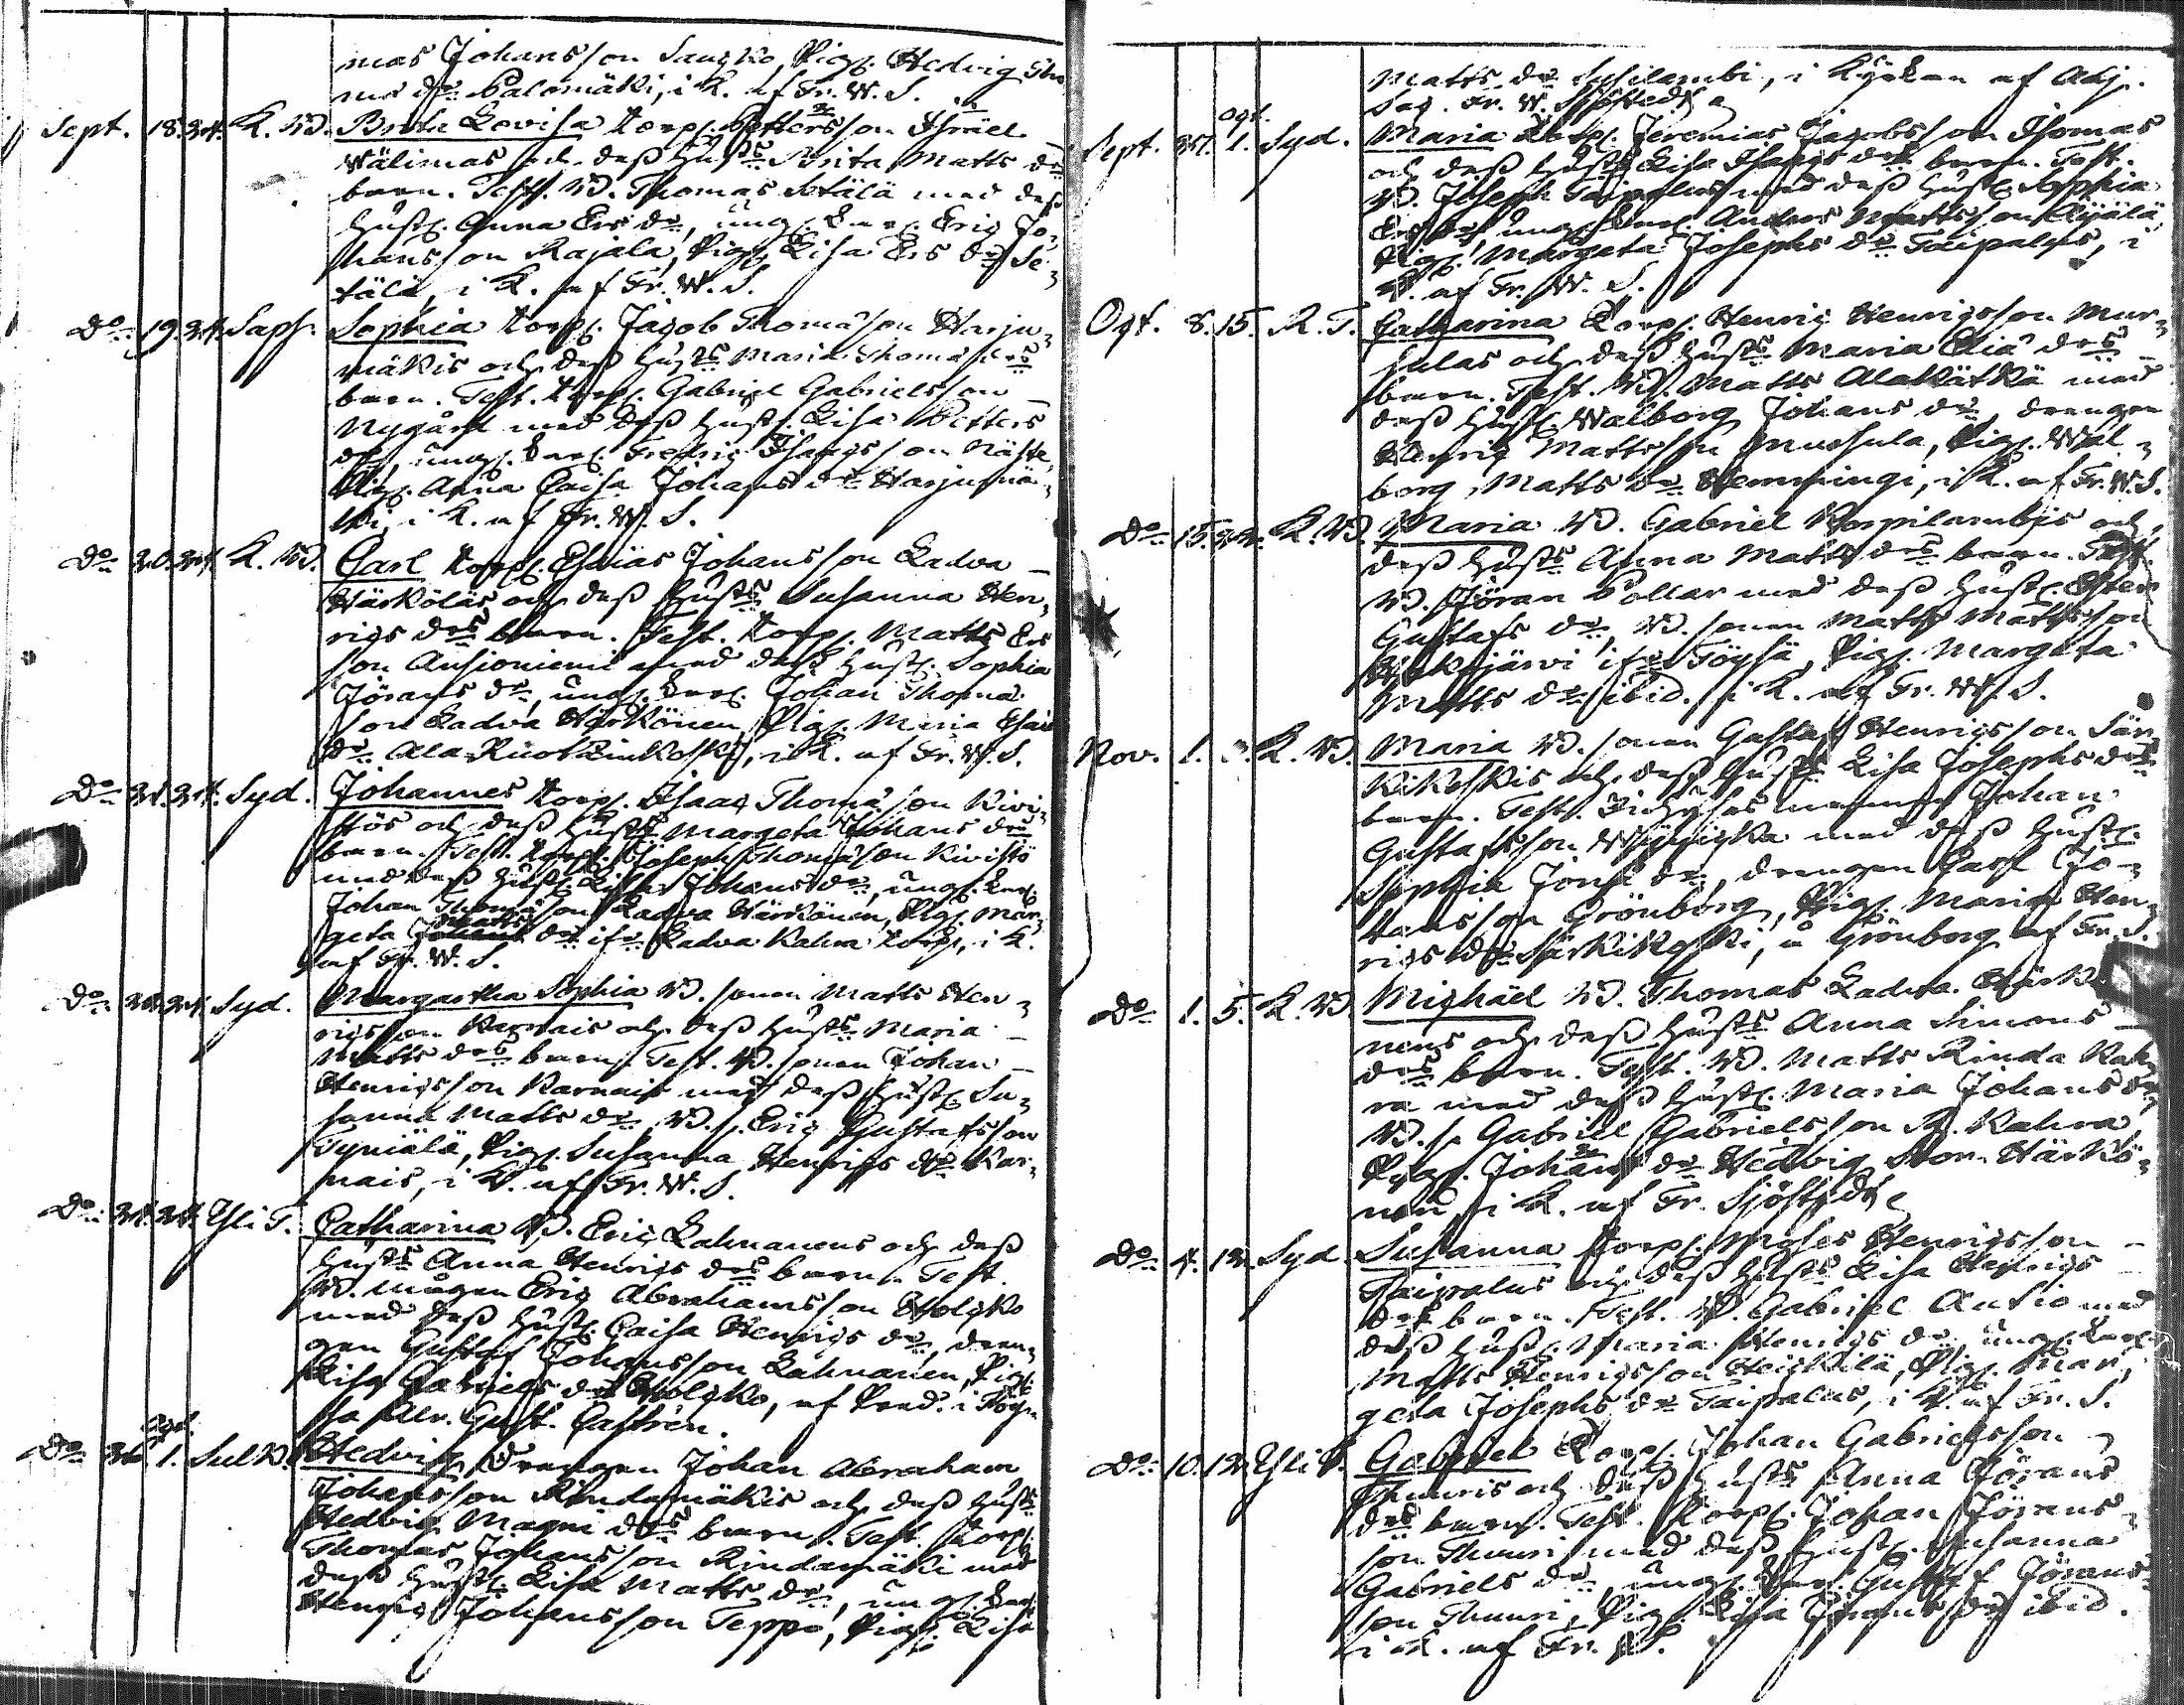 mas Johansson Saucko, Pig. Hedvig Tho
mæ dr Palomäki, i K. af Fr. W. S.
Sept. 18. 24. K. W. Brita Lovisa Torp. Pettersson Israel
Wälimas och dess Hustrs Brita Matts drs
barn. Test. B. Thomas Setälä med dess
Hustr. Anna Ers dr, ung. Dræ. Eric Jo-
hansson Rajala, Pig. Lisa Ers dr Se-
tälä, i K. af Fr. W. S.
Do 19. 24. Saps. Sophia Torp. Jacob Thomasson Harju-
mäkis och dess Hustrs Maria Thomæ drs
barn. Test. Torp. Gabriel Gabrielsson
Nygård med dess Hustr. Lisa Petters
dr, ung. Fredric Isaacsson
Pig. Anna Caisa Johans dr Harjumä-
ki, i K. af Fr. W. S.
Do 20. 24. K. W. Carl Torp. Esaias Johansson Ladva
Härköläs och dess Hustrs Susanna Hen-
rics drs barn. Test. Torp. Matts Ers
son Ansionieni med dess Hustr. Sophia
Jörans dr, ung. Johan Thomæ
son Ladva Härkönen, Pig. Maria Esaiæ
dr Ala Ruotzinkoski, i K. af Fr. W. S.
Do 21. 24. Syd. Johannes Torp. Isaac Thomæson Kivi-
stös och dess Hustrs Margeta Johans drs
barn. Test. Torp. Joseph Thomæson Kivistö
med dess Hustr. Johans dr, ung.
Johan Thomæson Ladva Härkönen, Pig. Mar-
geta Matts dr ifr. Ladva Kahra Torp, i K.
af Fr. W. S.
Do 22. 24. Syd. Margaretha Sophia B. sonen Matts Hen-
ricsson Karnais och dess Hustrs Maria
Matts drs barn. Test. B. sonen Johan
Henricsson Karnais med dess Hustr. Su-
sanna Matts dr, B. s. Eric Gustafsson
Tyniälä, Pig. Susanna Henrics dr Kar-
nais, i K. af Fr. W. S.
Do 21. 24. Yli T. Catharina B. Eric Lahnanens och dess
Hustrs Anna Henrics drs barn. Test.
B. mågen Eric Abrahamsson Holcko
med dess Hustr. Caisa Henrics dr, dren-
gen Gustaf Johansson Lahnanen, Pig.
Lisa Gabriels dr Holcko, af Pred. i Töy-
sa Gust. Castrén.
Oct.
Do 26. 1. Sulk. Hedvig Drengen Johan Abraham
Johansson Rindamäkis och dess Hustrs
Hedvig Magni drs barn. Test. Torp.
Thomas Johansson Rindamäki med
dess Hustr. Lisa Matts dr, ung.
Henric Johansson Teppo, Pig. Lisa
Matts dr Sysilambi, i Kyrkan af Adj.
Sac. Fr. W. Sjöstedt
Oct.
Sept. 27. 1. Syd. Maria Torp. Jeremias Jacobsson Isomas
och dess Hustrs Lisa Isaacs drs barn. Test.
B. Joseph Taipalus med dess Hustr. Sophia
Ers dr, ung. Anders Mattsson Äijälä,
Pig. Margeta Josephs dr Taipalus, i
K. af Fr. W. S.
Oct. 8. 15. R. T. Catharina Torp. Henric Henricsson Mur-
sulas och dess Hustrs Maria Eliæ drs
barn. Test. B. Matts Alakätkä med
dess Hustr. Walborg Johans dr, drengen
Henric Mattsson Mursula, Pig. Wal-
borg Matts dr Hemmingi, i K. af Fr. W. S.
Do 15. 22. K. W. Maria B. Gabriel Korpilambis och
dess Hustrs Anna Matts drs barn. Test.
B. Jöran Pollar med dess Hustr. Ester
Gustafs dr, B. sonen Matts Mattsson
järvi ifr. Töysä, Pig. Margeta
Matts dr ibid. i K. af Fr. W. S.
Nov. 1. 5. K. W. Maria B. sonen Gustaf Henricsson Sär-
kikoskis och dess Hustrs Lisa Josephs drs
barn. Test. Johan
Gustafsson med dess Hustr.
Sophia dr, drengen Carl Jo-
hansson Grönborg, Pig. Maria Hen-
rics dr Särkikoski, å Grönborg af Fr. S.
Do 1. 5. K. W. Michäel B. Thomas Ladva Härkö
nens och dess Hustrs Anna Simons
drs barn. Test. B. Matts Rinda Kah-
ra med dess Hustr. Maria Johans dr,
B. s. Gabriel Gabrielsson R. Kahra,
Pig. Johans dr Hedvig Stor Härkö-
nen, i K. af Fr. Sjöstedt
Do 4. 12. Syd. Susanna Torp. Moses Henricsson
Taipalus och dess Hustrs Lisa Henrics
drs barn. Test. B. Gabriel Autio med
dess Hustr. Maria Henrics dr, ung.
Matts Henricsson Heickilä, Pig. Mar-
geta Josephs dr Taipalus, i K. af Fr. S.
Do 10. 12. Yli T. Gabriel Torp. Johan Gabrielsson
Thuuris och dess Hustrs Anna Jörans
drs barn. Test. Torp. Johan Jörans-
son Thuuri med dess Hustr. Susanna
Gabriels dr, ung. Gustaf Jörans-
son Thuuri, Pig. Lisa Jörans dr ibid.
i K. af Fr. S.